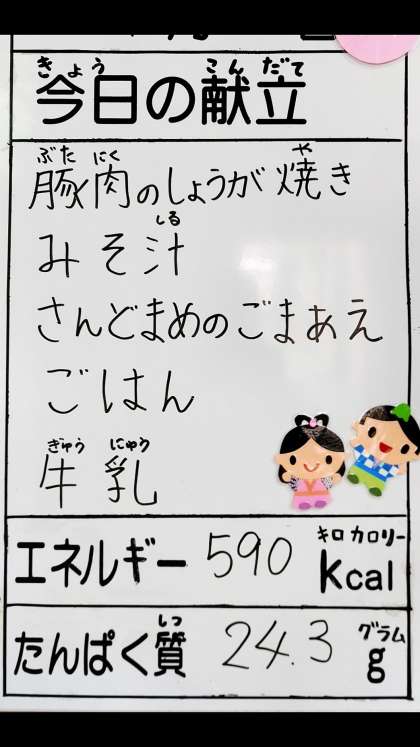 きょう こんだて
今日の献立
ぶた にく や
豚肉のしょうが焼き
しる
みそ汁
さんどまめのごまあえ
ごはん
ぎゅう にゅう
牛乳
キロ カロリー
エネルギー 590 kcal
しつ グラム
たんぱく質 24.3 g